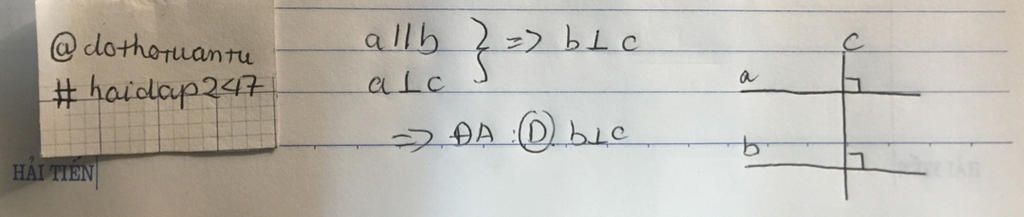 @dothotuantu
# haidap247
HẢI TIẾN
a//b } => b⊥c
a⊥c
=> ĐA: D b⊥c
c
a
b